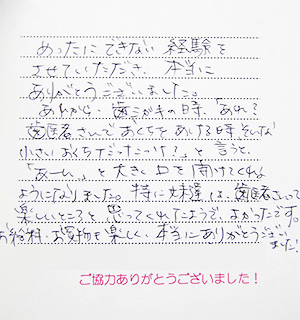 めったにできない 経験を
させていただき、本当に
ありがとうございました。
あれから、歯みがきの時、「あれ?
歯医者さんでおくちをあける時そんな
小さいおくちだったっけ?」と言うと、
「あーん」と大きく口を開けてくれる
ようになりました。特に妹達は、歯医者さんって
楽しいところと思ってくれたようで、よかったです。
お給料・お買物も楽しく、本当にありがとうござい
ました!
ご協力ありがとうございました！